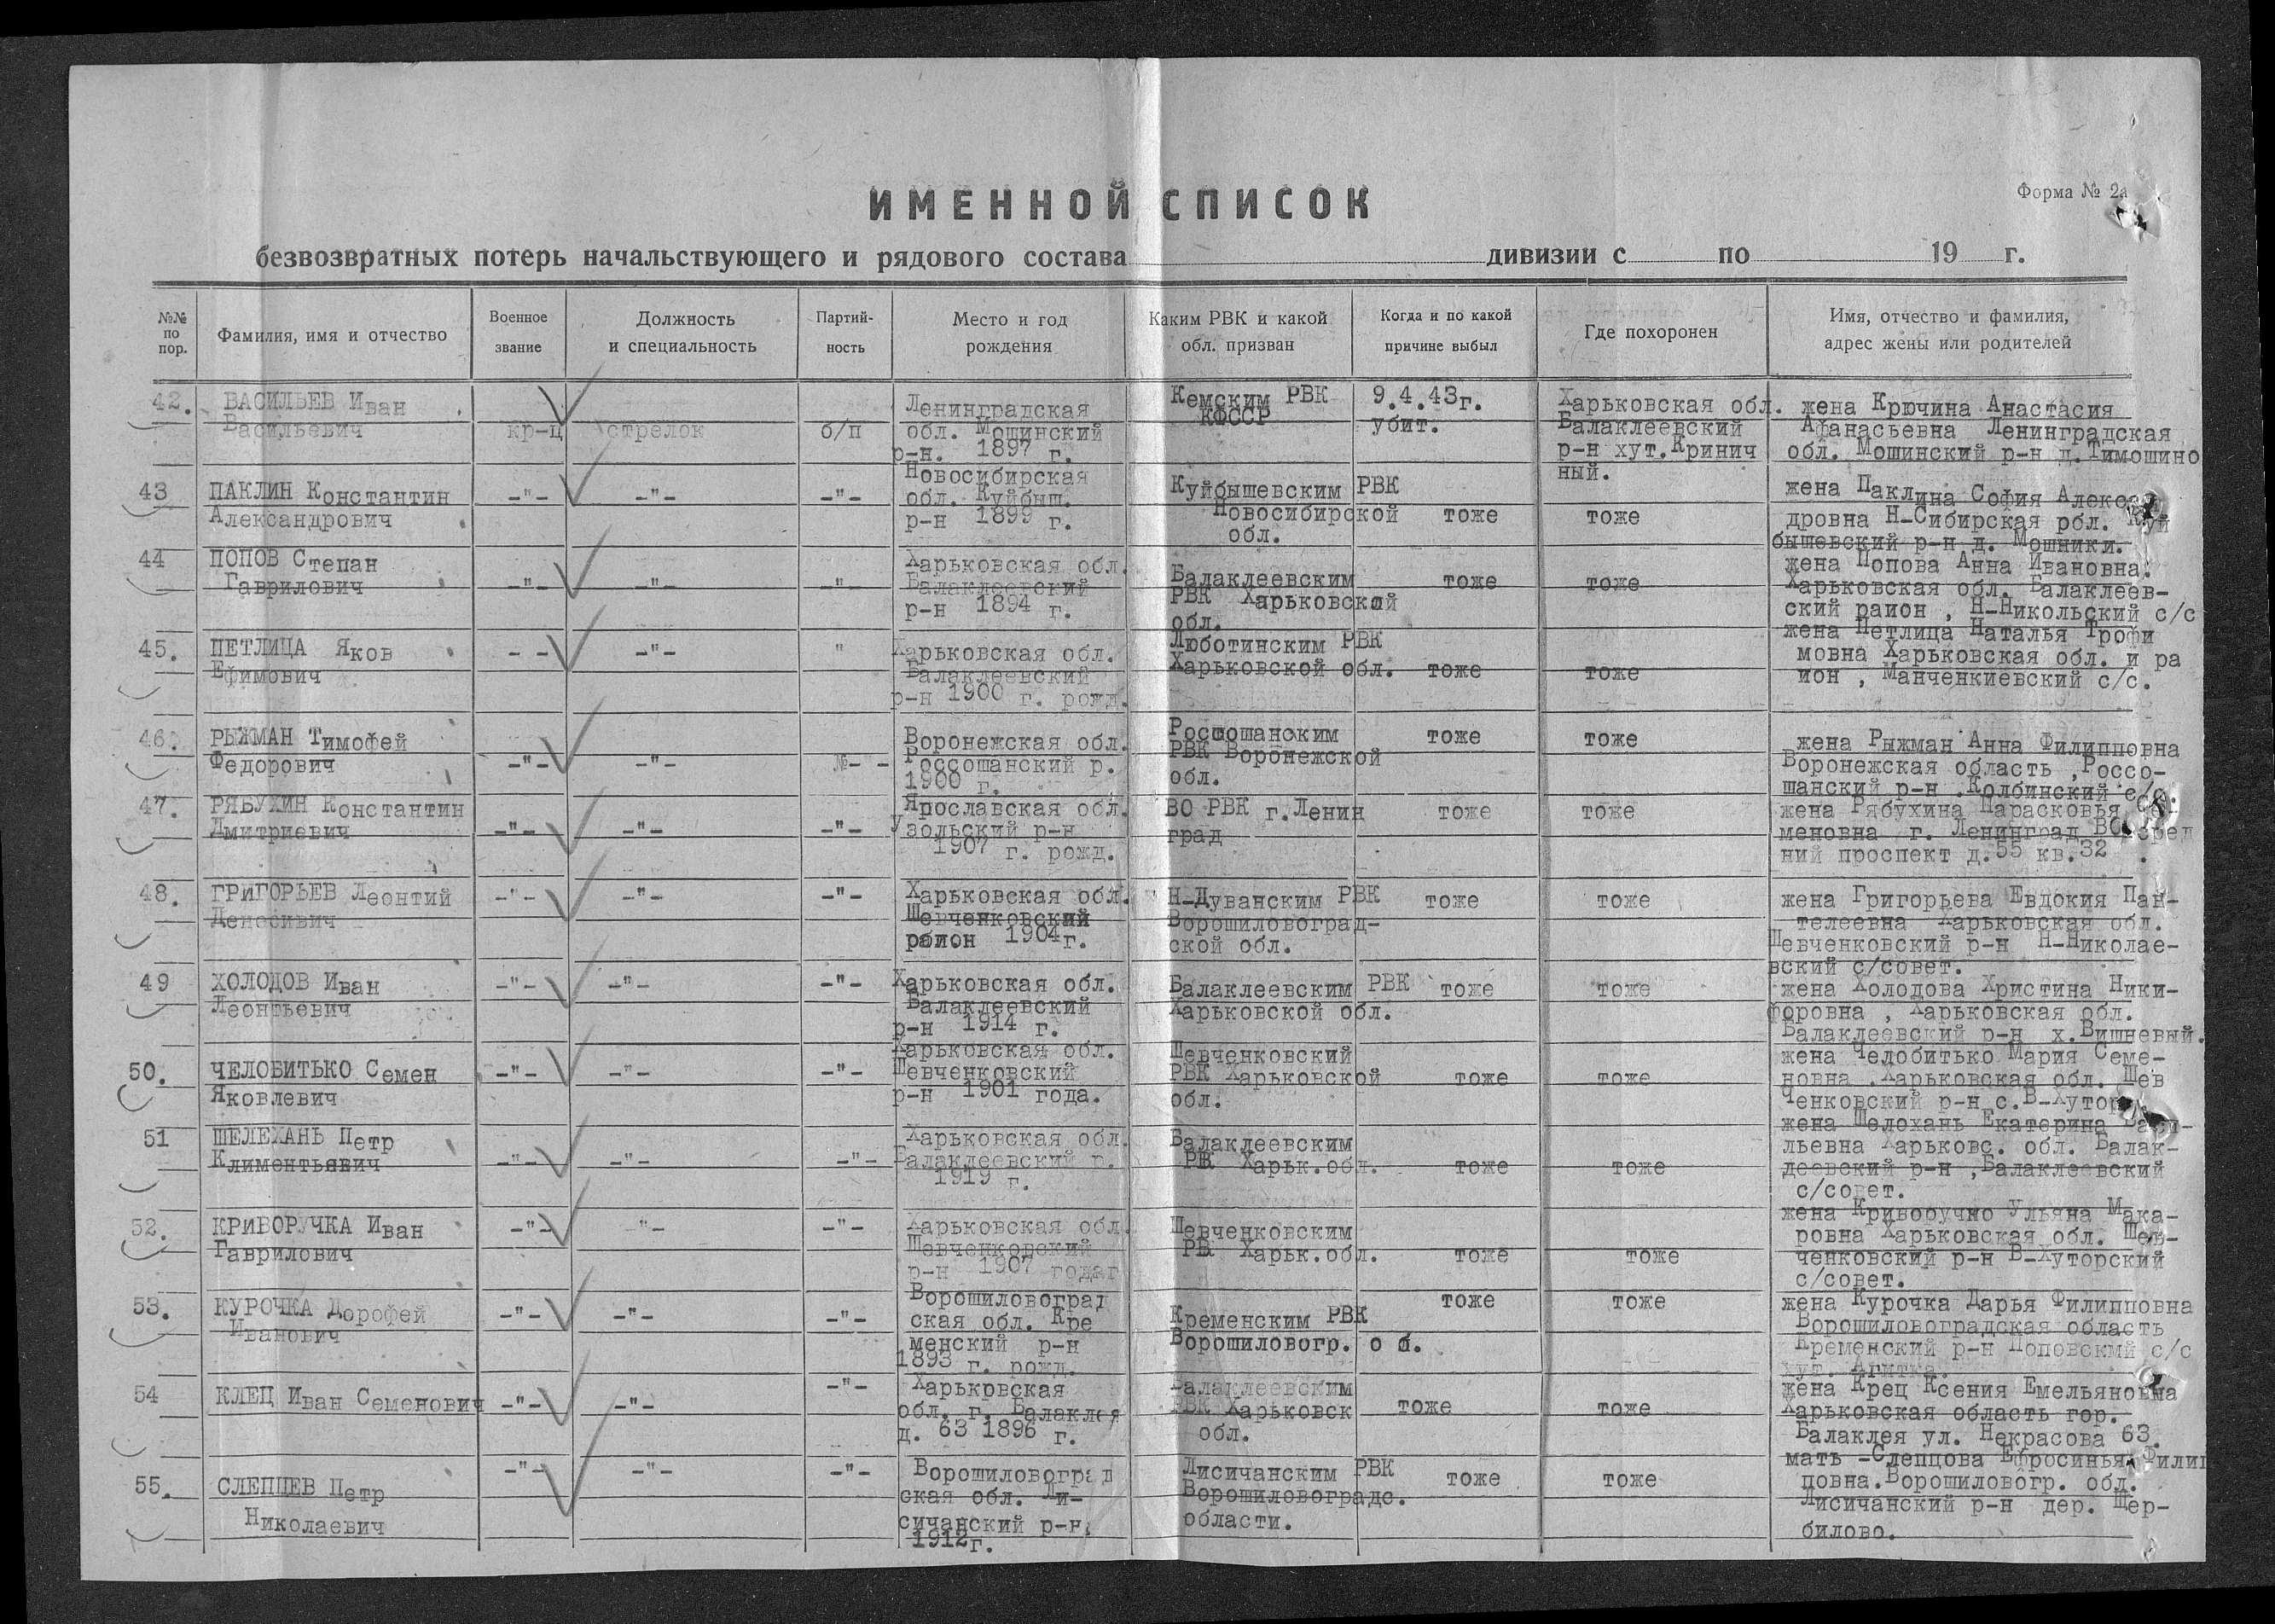 Форма № 2а
ИМЕННОЙ СПИСОК
безвозвратных потерь начальствующего и рядового состава дивизии с по 19 г.
№№ по пор.
Фамилия, имя и отчество
Военное звание
Должность и специальность
Партий-ность
Место и год рождения
Каким РВК и какой обл. призван
Когда и по какой причине выбыл
Где похоронен
Имя, отчество и фамилия, адрес жены или родителей
42. ВАСИЛЬЕВ Иван
Васильевич
кр-ц
стрелок
б/п
Ленинградская
обл. Мошинский
р-н. 1897 г.
Кемским РВК
КФССР
9.4.43г.
убит.
Харьковская обл.
Балаклеевский
р-н хут.Кринич
ный.
жена Крючина Анастасия
Афанасьевна Ленинградская
обл. Мошинский р-н д.Тимошино
43 ПАКЛИН Константин
Александрович
-"-
-"-
-"-
Новосибирская
обл. Куйбыш.
р-н 1899 г.
Куйбышевским РВК
Новосибирской
обл.
тоже
тоже
жена Паклина София Алекса
дровна Н-Сибирская рбл. Куй
бышевский р-н д. Мошники.
44 ПОПОВ Степан
Гаврилович
-"-
-"-
-"
Харьковская обл.
Балаклеевский
р-н 1894 г.
Балаклеевским
РВК Харьковской
обл.
тоже
тоже
жена Попова Анна Ивановна.
Харьковская обл. Балаклеев-
ский раион , Н-Никольский с/с
45. ПЕТЛИЦА Яков
Ефимович
- -
-"-
"
Харьковская обл.
Балаклеевский
р-н 1900 г. рожд.
Люботинским РВК
Харьковской обл.
тоже
тоже
жена Петлица Наталья Трофи
мовна Харьковская обл. и ра
ион , Манченкиевский с/с.
46. РЫЖМАН Тимофей
Федорович
-"-
-"-
№- -
Воронежская обл.
Россошанский р.
1900 г.
Россошанским
РВК Воронежской
обл.
тоже
тоже
жена Рыжман Анна Филипповна
Воронежская область ,Россо-
шанский р-н .Колбинский с/с.
47. РЯБУХИН Константин
Дмитриевич
-"-
-"-
-"-
Ярославская обл.
Узольский р-н
1907 г. рожд.
ВО РВК г.Ленин
град
тоже
тоже
жена Рябухина Парасковья
меновна г. Ленинград ВО
ний проспект д.55 кв.32 .
48. ГРИГОРЬЕВ Леонтий
Денесивич
-"-
-"-
-"-
Харьковская обл.
Шевченковский
раион 1904г.
Н-Дуванским РВК
Ворошиловоград-
ской обл.
тоже
тоже
жена Григорьева Евдокия Пан-
телеевна Харьковская обл.
Шевченковский р-н Н-Николае-
вский с/совет.
49 ХОЛОДОВ Иван
Леонтьевич
-"-
-"-
-"-
Харьковская обл.
Балаклеевский
р-н 1914 г.
Балаклеевским РВК
Харьковской обл.
тоже
тоже
жена Холодова Христина Ники-
форовна , Харьковская обл.
Балаклеевский р-н х.Вишневый.
50. ЧЕЛОБИТЬКО Семен
Яковлевич
-"-
-"-
-"-
Харьковская обл.
Шевченковский
р-н 1901 года.
Шевченковский
РВК Харьковской
обл.
тоже
тоже
жена Челобитько Мария Семе-
новна .Харьковская обл. Шев
Ченковский р-н с.В-Хутор
51 ШЕЛЕХАНЬ Петр
Климентьявич
-"-
-"-
-"-
Харьковская обл.
Балаклеевский р.
1919 г.
Балаклеевским
РВК Харьк.обл.
тоже
тоже
жена Шелохань Екатерина Васи-
льевна Харьковс. обл. Балак-
деевский р-н ,Балаклеевский
с/совет.
52. КРИВОРУЧКА Иван
Гаврилович
-"-
-"-
-"-
Харьковская обл.
Шевченковский
р-н 1907 годаг
Шевченковским
РВК Харьк.обл.
тоже
тоже
жена Криворучко Ульяна Мака-
ровна Харьковская обл. Шев-
ченковский р-н В-Хуторский
с/совет.
53. КУРОЧКА Дорофей
Иванович
-"-
-"-
-"-
Ворошиловоград
ская обл. Кре
менский р-н
1893 г. рожд.
Кременским РВК
Ворошиловгр. о б.
тоже
тоже
жена Курочка Дарья Филипповна
Ворошиловоградская область
Кременский р-н Поповский с/с
хут.
54 КЛЕЦ Иван Семенович
-"-
-"-
-"-
Харькрвская
обл. г. Балаклея
д. 63 1896 г.
Балаклеевским
РВК Харьковск
обл.
тоже
тоже
жена Крец Ксения Емельяновна
Харьковская область гор.
Балаклея ул. Некрасова 63.
55. СЛЕПЦЕВ Петр
Николаевич
-"-
-"-
-"-
Ворошиловоград
ская обл. Ли-
сичанский р-н,
1912г.
Лисичанским РВК
Ворошиловоградс.
области.
тоже
тоже
мать -Слепцова Ефросинья Филип
повна.Ворошиловогр. обл.
Лисичанский р-н дер. Шер-
билово.